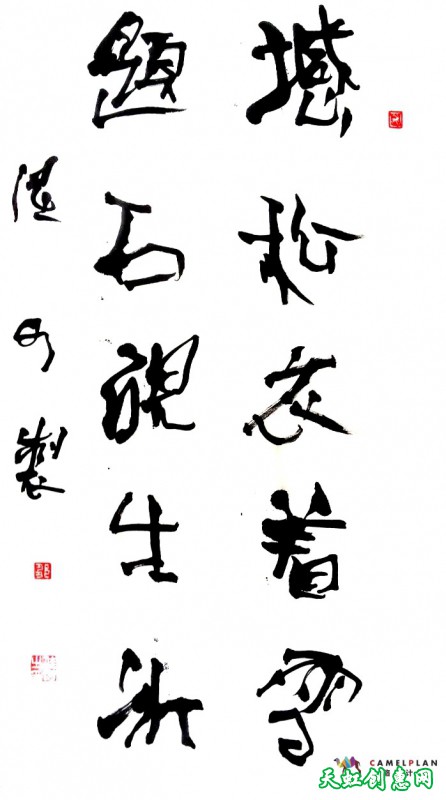 撼松衣着雪
題石硯生冰
製
CAMELPLAN
天虹创意网